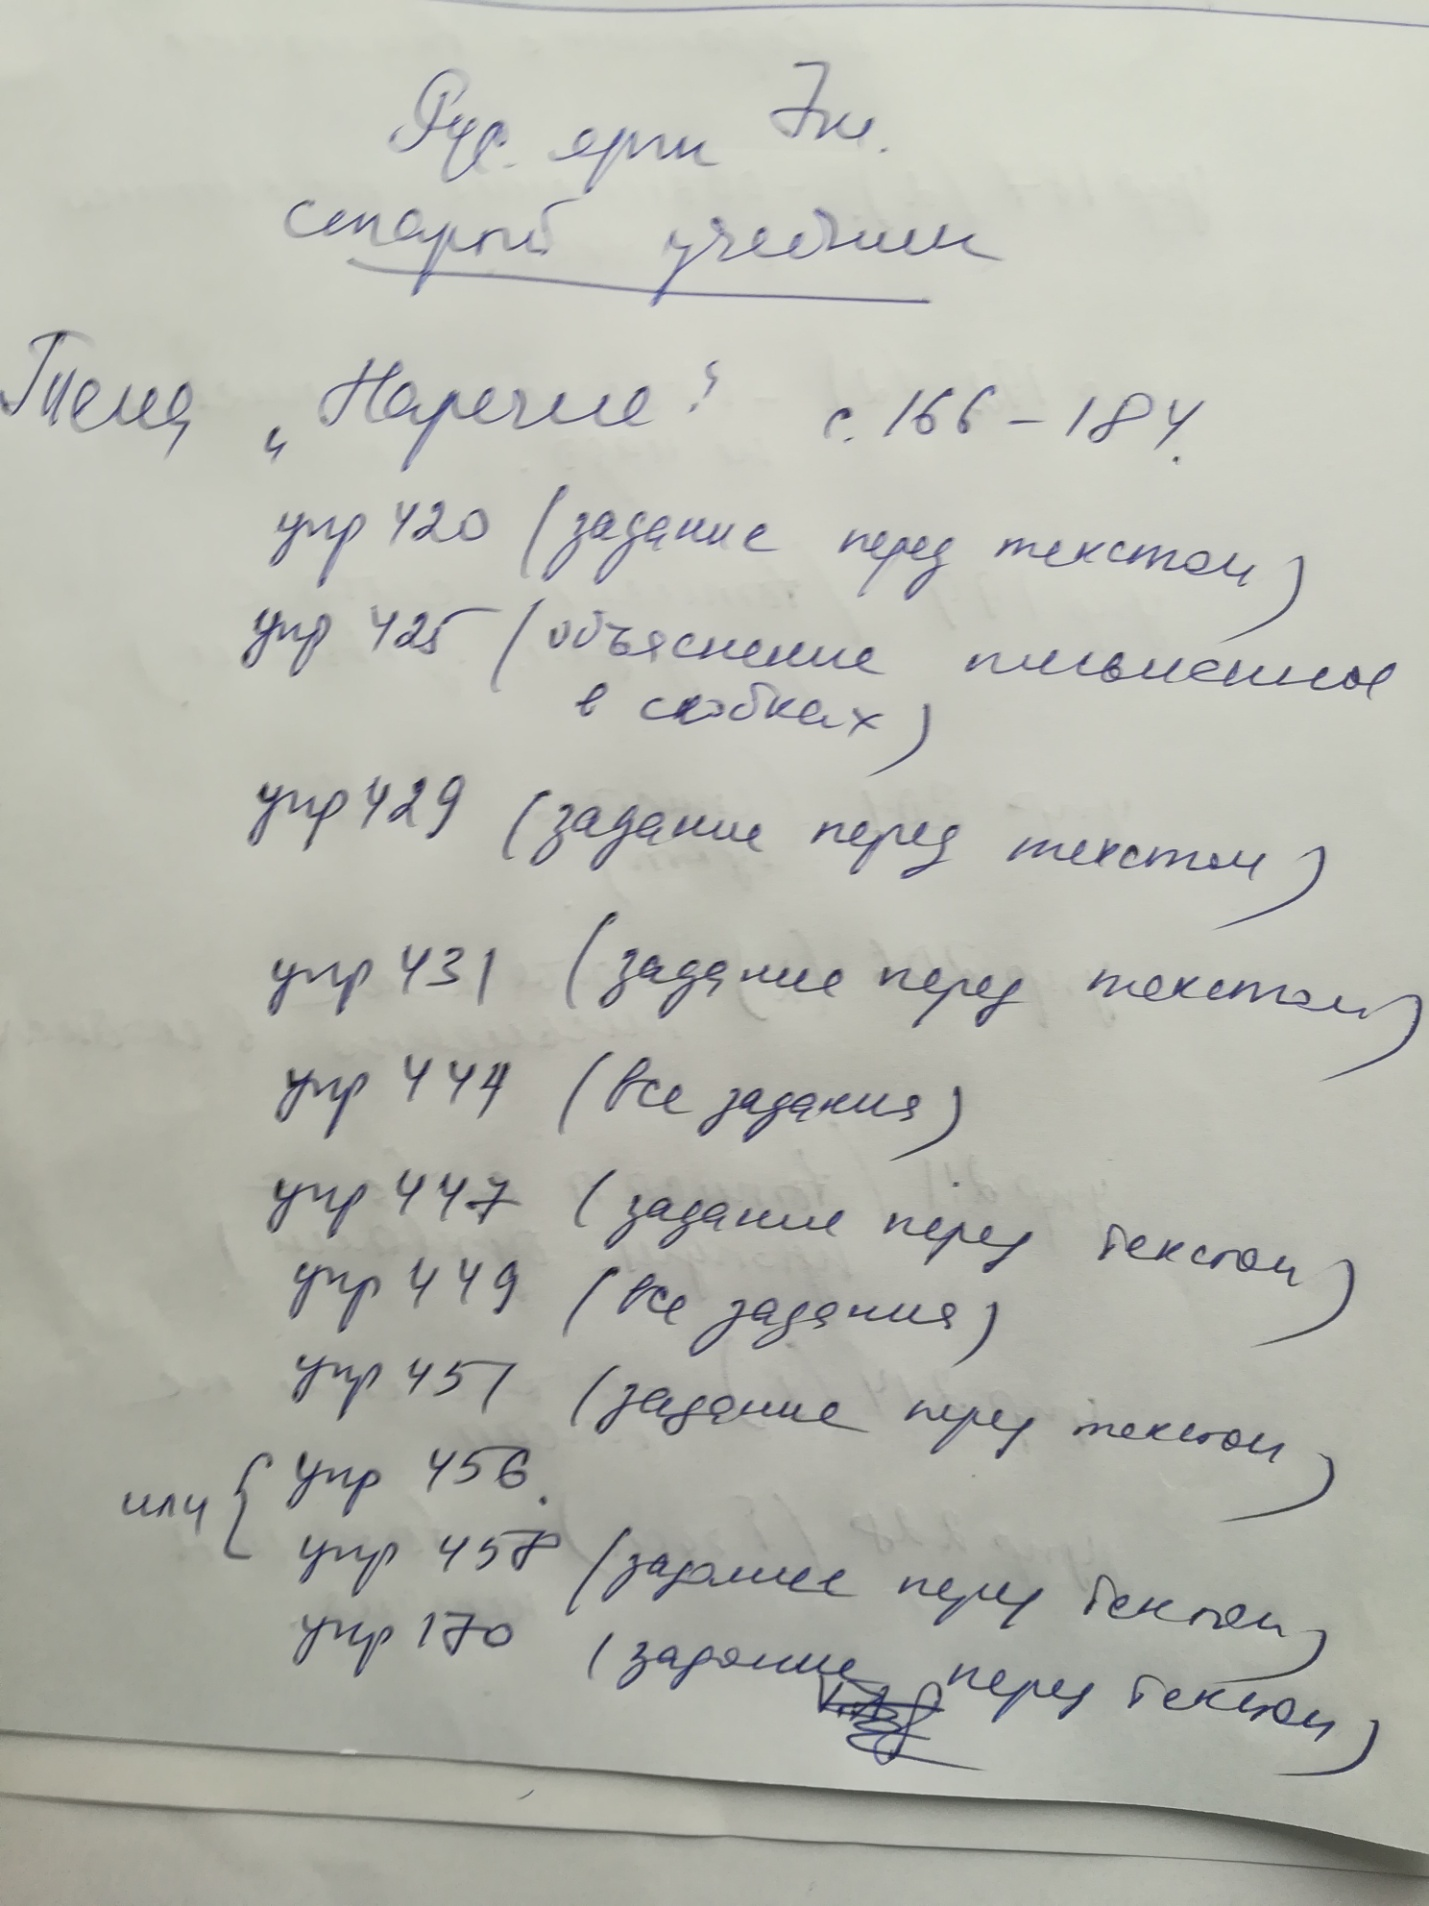 Рус. язык 7кл.
старый учебник
Тема „Наречие" с. 166 – 184.
упр 420 (задание перед текстом)
упр 425 (объяснение письменное
в скобках)
упр 429 (задание перед текстом)
упр 431 (задание перед текстом)
упр 444 (все задания)
упр 447 (задание перед текстом)
упр 449 (все задания)
упр 451 (задание перед текстом)
или { упр 456.
упр 458 (задание перед текстом)
упр 170 (задание перед текстом)